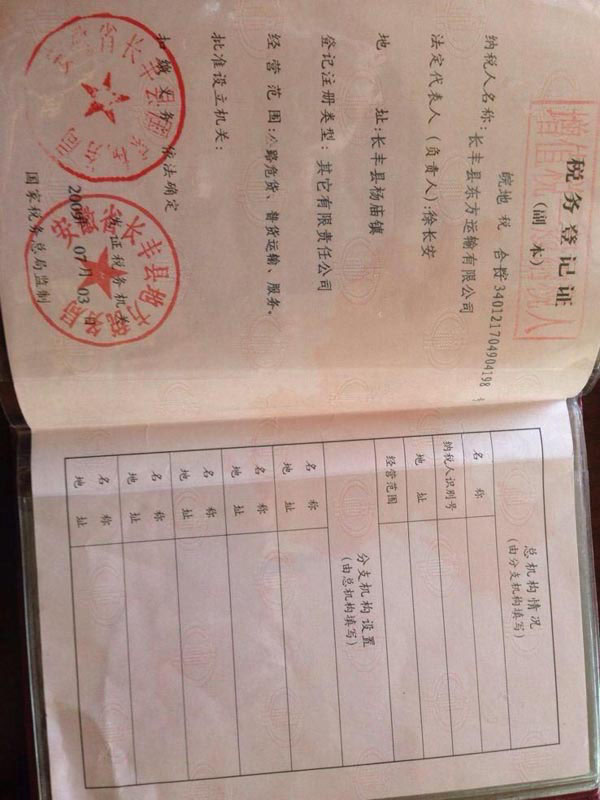 税务登记证
(副 本)
皖地 税 合 字 340121704904198 号
纳税人名称:长丰县东方运输有限公司
法定代表人(负责人):徐长安
地 址:长丰县杨庙镇
登记注册类型:其它有限责任公司
经 营 范 围:公路危货、普货运输、服务。
批准设立机关:
扣 缴 义 务 依法确定
发证税务机关
07月 03日
国家税务总局监制
总机构情况
(由分支机构填写)
名 称
纳税人识别号
地 址
经营范围
分支机构设置
(由总机构填写)
名 称
地 址
名 称
地 址
名 称
地 址
名 称
地 址
名 称
地 址